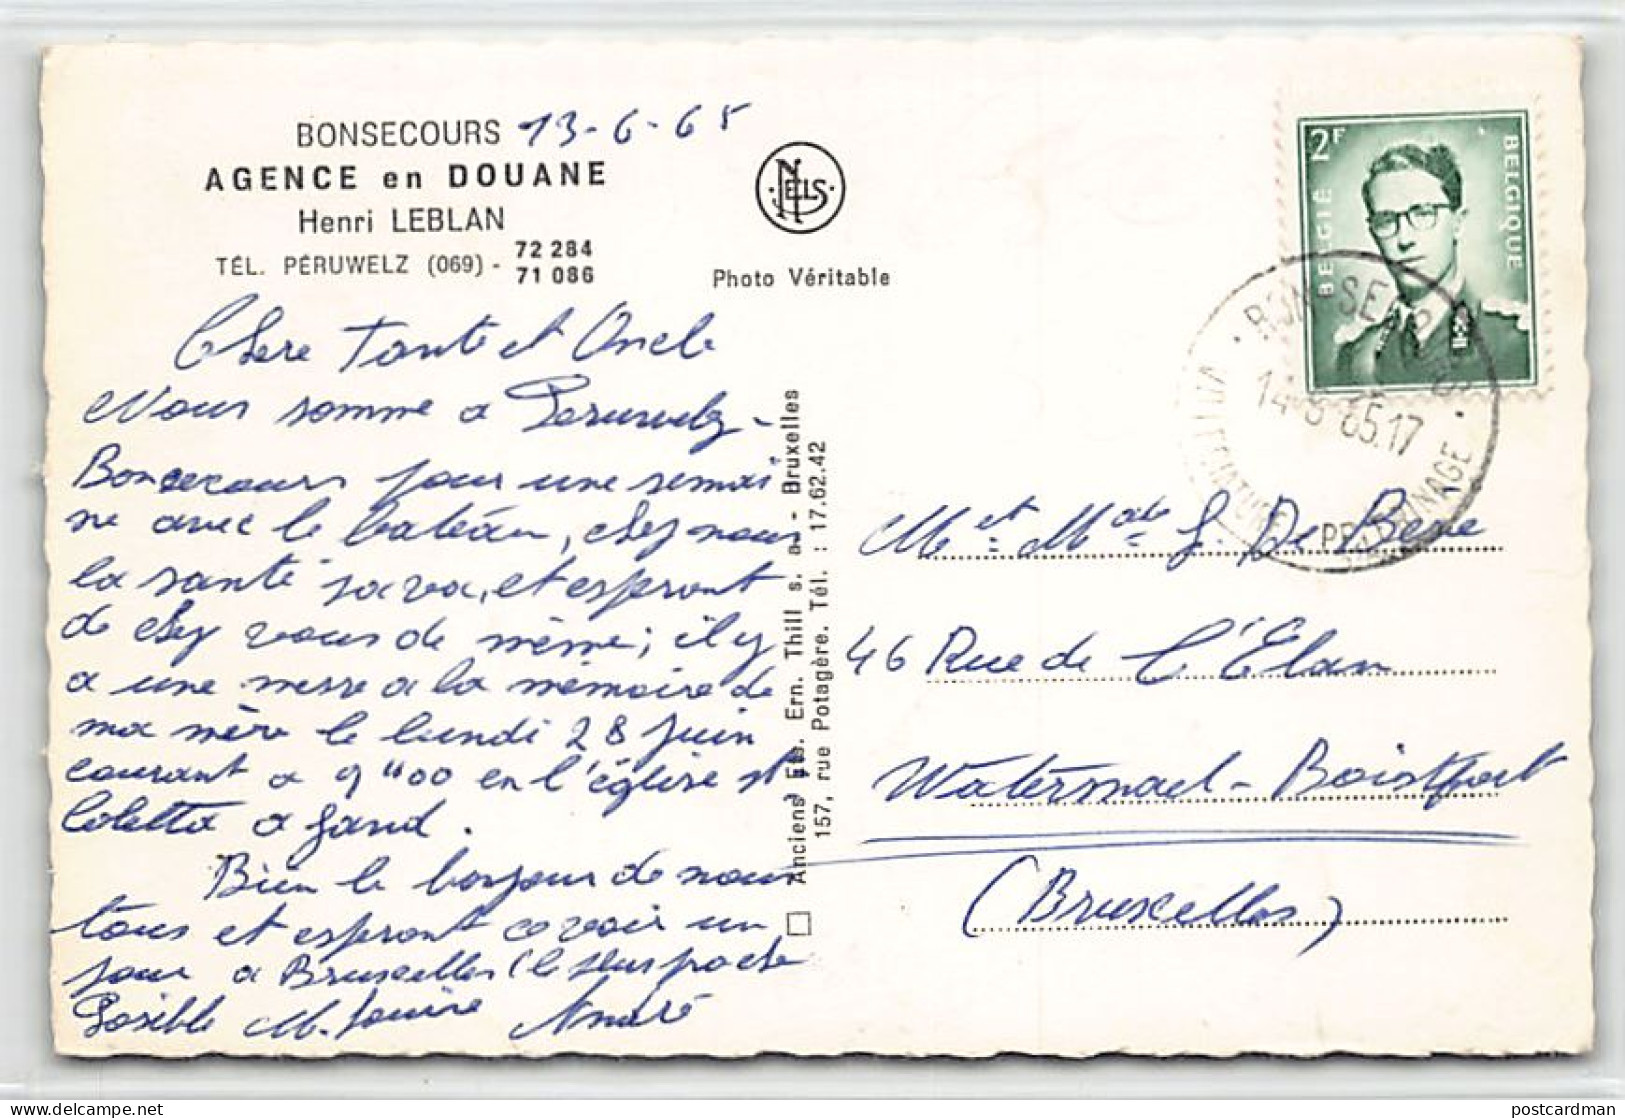 BONSECOURS 13-6-65
AGENCE en DOUANE
Henri LEBLAN
TÉL. PÉRUWELZ (069) - 72 284
71 086
NELS
Photo Véritable
Chere Tante et Oncle
Nous somme a Peruwelz -
Bonsecours pour une semai
ne avec le bateau, chez nous
la santé sa va, et espront
de chez vous de même; il y
a une messe a la mémoire de
ma mère le lundi 28 juin
courant a 9"00 en l'église st
Coletta a Gand.
Bien le bonjour de nous
tous et espront voir un
jour a Bruxelles (le plus proche
Posible M. Louise André
Anciens Ets. Ern. Thill s. a. - Bruxelles
157, rue Potagère. Tél. : 17.62.42
2F
BELGIË
BELGIQUE
BON-SECOURS
14-6-65.17
VILLÉGIATURE PÈLERINAGE
M et Mde De Bene
46 Rue de l'Élan
Watermael-Boistfort
(Bruxelles)
postcardman